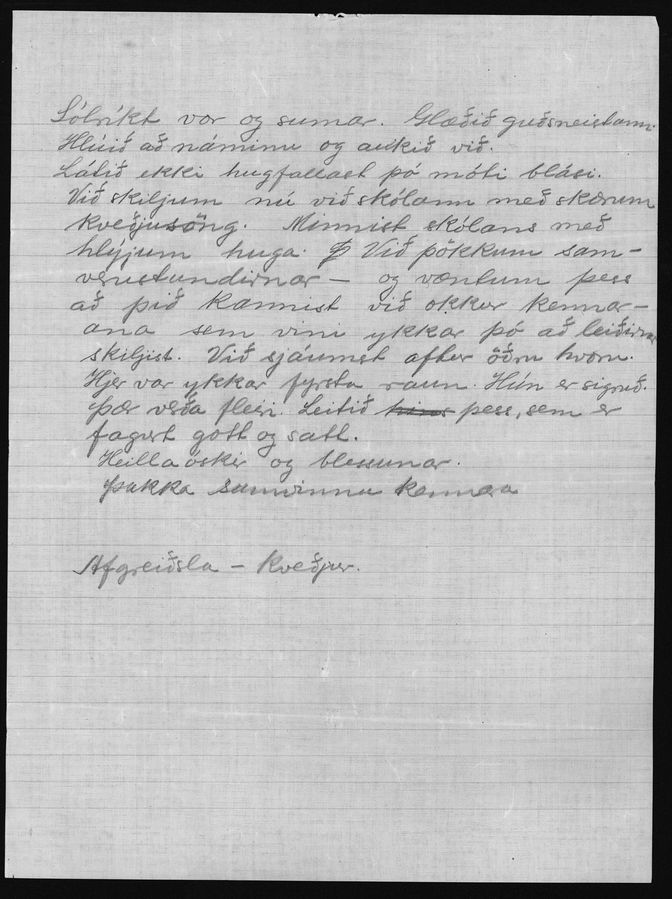 Sólríkt vor og sumar. Glæðið guðsneistann.
Hlúið að náminu og aukið við.
Látið ekki hugfallast þó móti blási.
Við skiljum nú við skólann með skærum
kveðjusöng. Minnist skólans með
hlýjum huga. Við þökkum sam-
verustundirnar — og væntum þess
að þið kannist við okkur kennar-
ana sem vini ykkar þó að leiðirnar
skiljist. Við sjáumst aftur öðru hvoru.
Hjer var ykkar fyrsta raun. Hún er sigruð.
Þær verða fleiri. Leitið þess, sem er
fagurt gott og satt.
Heillaóskir og blessunar.
Þakka samvinnu kennara

Afgreiðsla — Kveðjur.